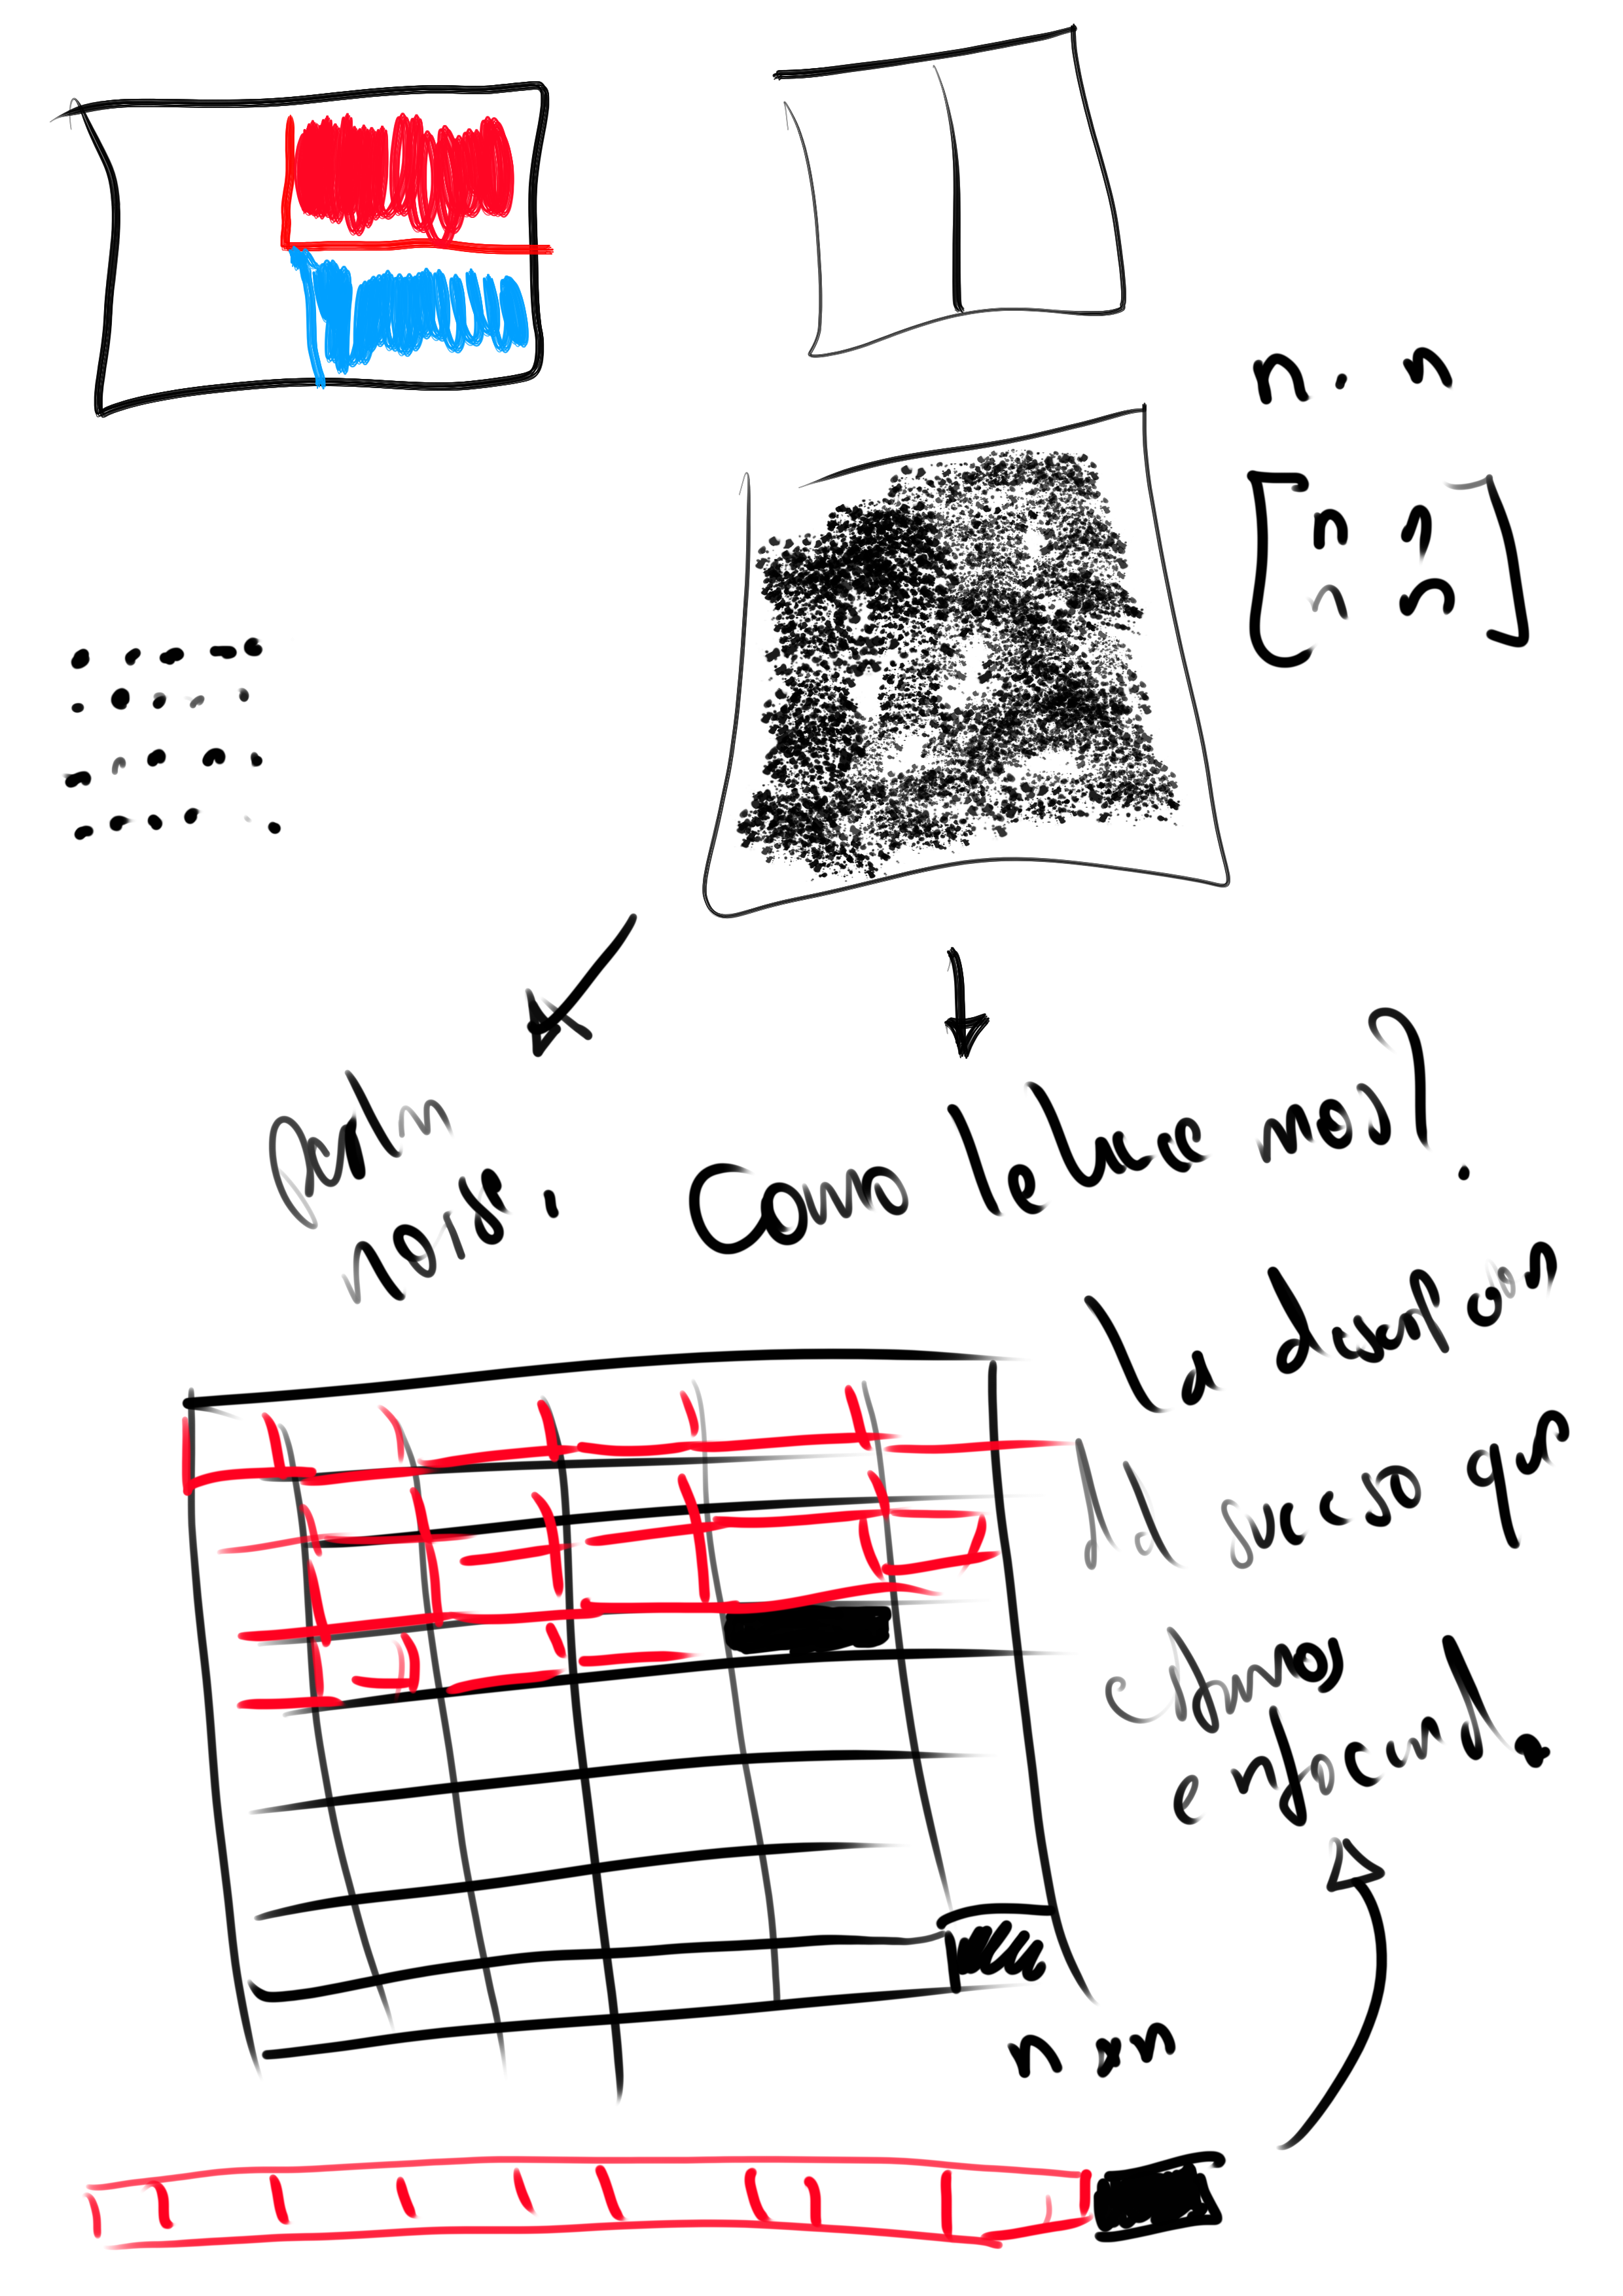 n . n
n n
n n
perln
noise.
Como le hace mos?
la descripcion
del suceso que
estamos
enfocando
n x n